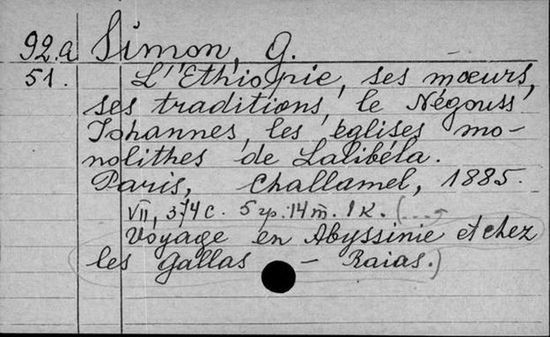 92.a Simon, G.
51. L'Ethiopie, ses mœurs,
ses traditions, le Négouss
Iohannes, les églises mo-
nolithes de Lalibéla.
Paris, Challamel, 1885.
VII, 374 c. 5 гр. 14 т. 1 к. (....
Voyage en Abyssinie et chez
les Gallas - Raias.)